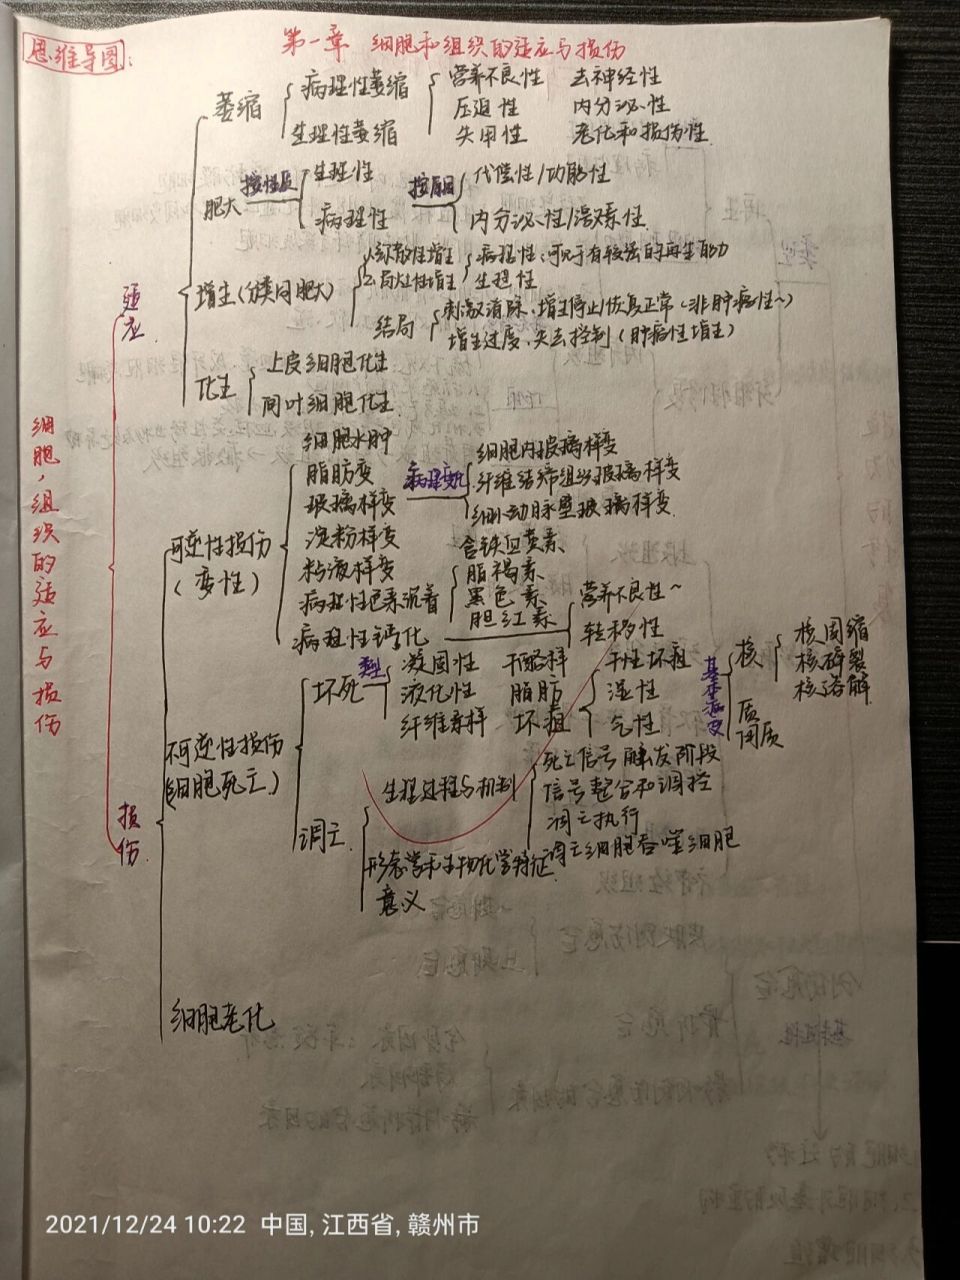 思维导图:
第一章 细胞和组织的适应与损伤
细胞,组织的适应与损伤
适应
萎缩
病理性萎缩
营养不良性 去神经性
压迫性 内分泌性
失用性 老化和损伤性
生理性萎缩
肥大
按性质
生理性
病理性
按原因
代偿性/功能性
内分泌性/激素性
增生(分类同肥大)
1.弥散性增生
2.局灶性增生
病理性:可见于有较强的再生能力
生理性
结局
刺激消除,增生停止/恢复正常(非肿瘤性~)
增生过度,失去控制(肿瘤性增生)
化生
上皮细胞化生
间叶细胞化生
损伤
可逆性损伤
(变性)
细胞水肿
脂肪变
玻璃样变
细胞内玻璃样变
纤维结缔组织玻璃样变
细小动脉壁玻璃样变
淀粉样变
粘液样变
病理性色素沉着
含铁血黄素
脂褐素
黑色素
胆红素
病理性钙化
营养不良性~
转移性
不可逆性损伤
(细胞死亡)
坏死
类型
凝固性 干酪样
液化性 脂肪
纤维素样 坏疽
干性坏疽
湿性
气性
基本病变
核
核固缩
核碎裂
核溶解
质
间质
凋亡
生理过程与机制
死亡信号触发阶段
信号整合和调控
凋亡执行
凋亡细胞吞噬细胞
形态学和生物化学特征
意义
细胞老化
2021/12/24 10:22 中国, 江西省, 赣州市